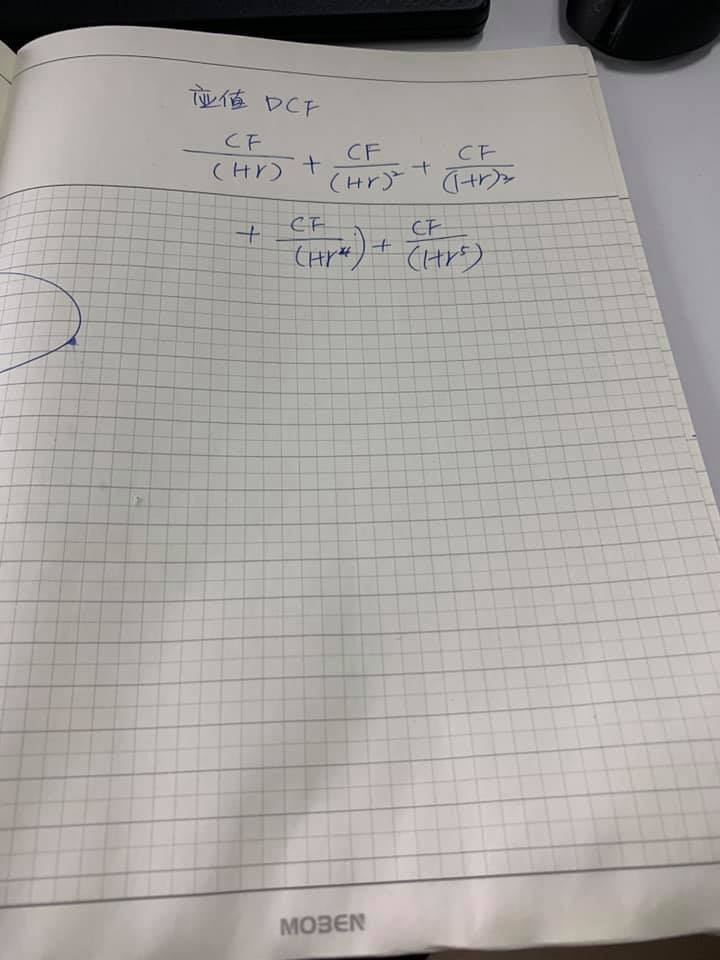 应值 DCF
CF/(1+r) + CF/(1+r)² + CF/(1+r)³
+ CF/(1+r⁴) + CF/(1+r⁵)
MOBEN